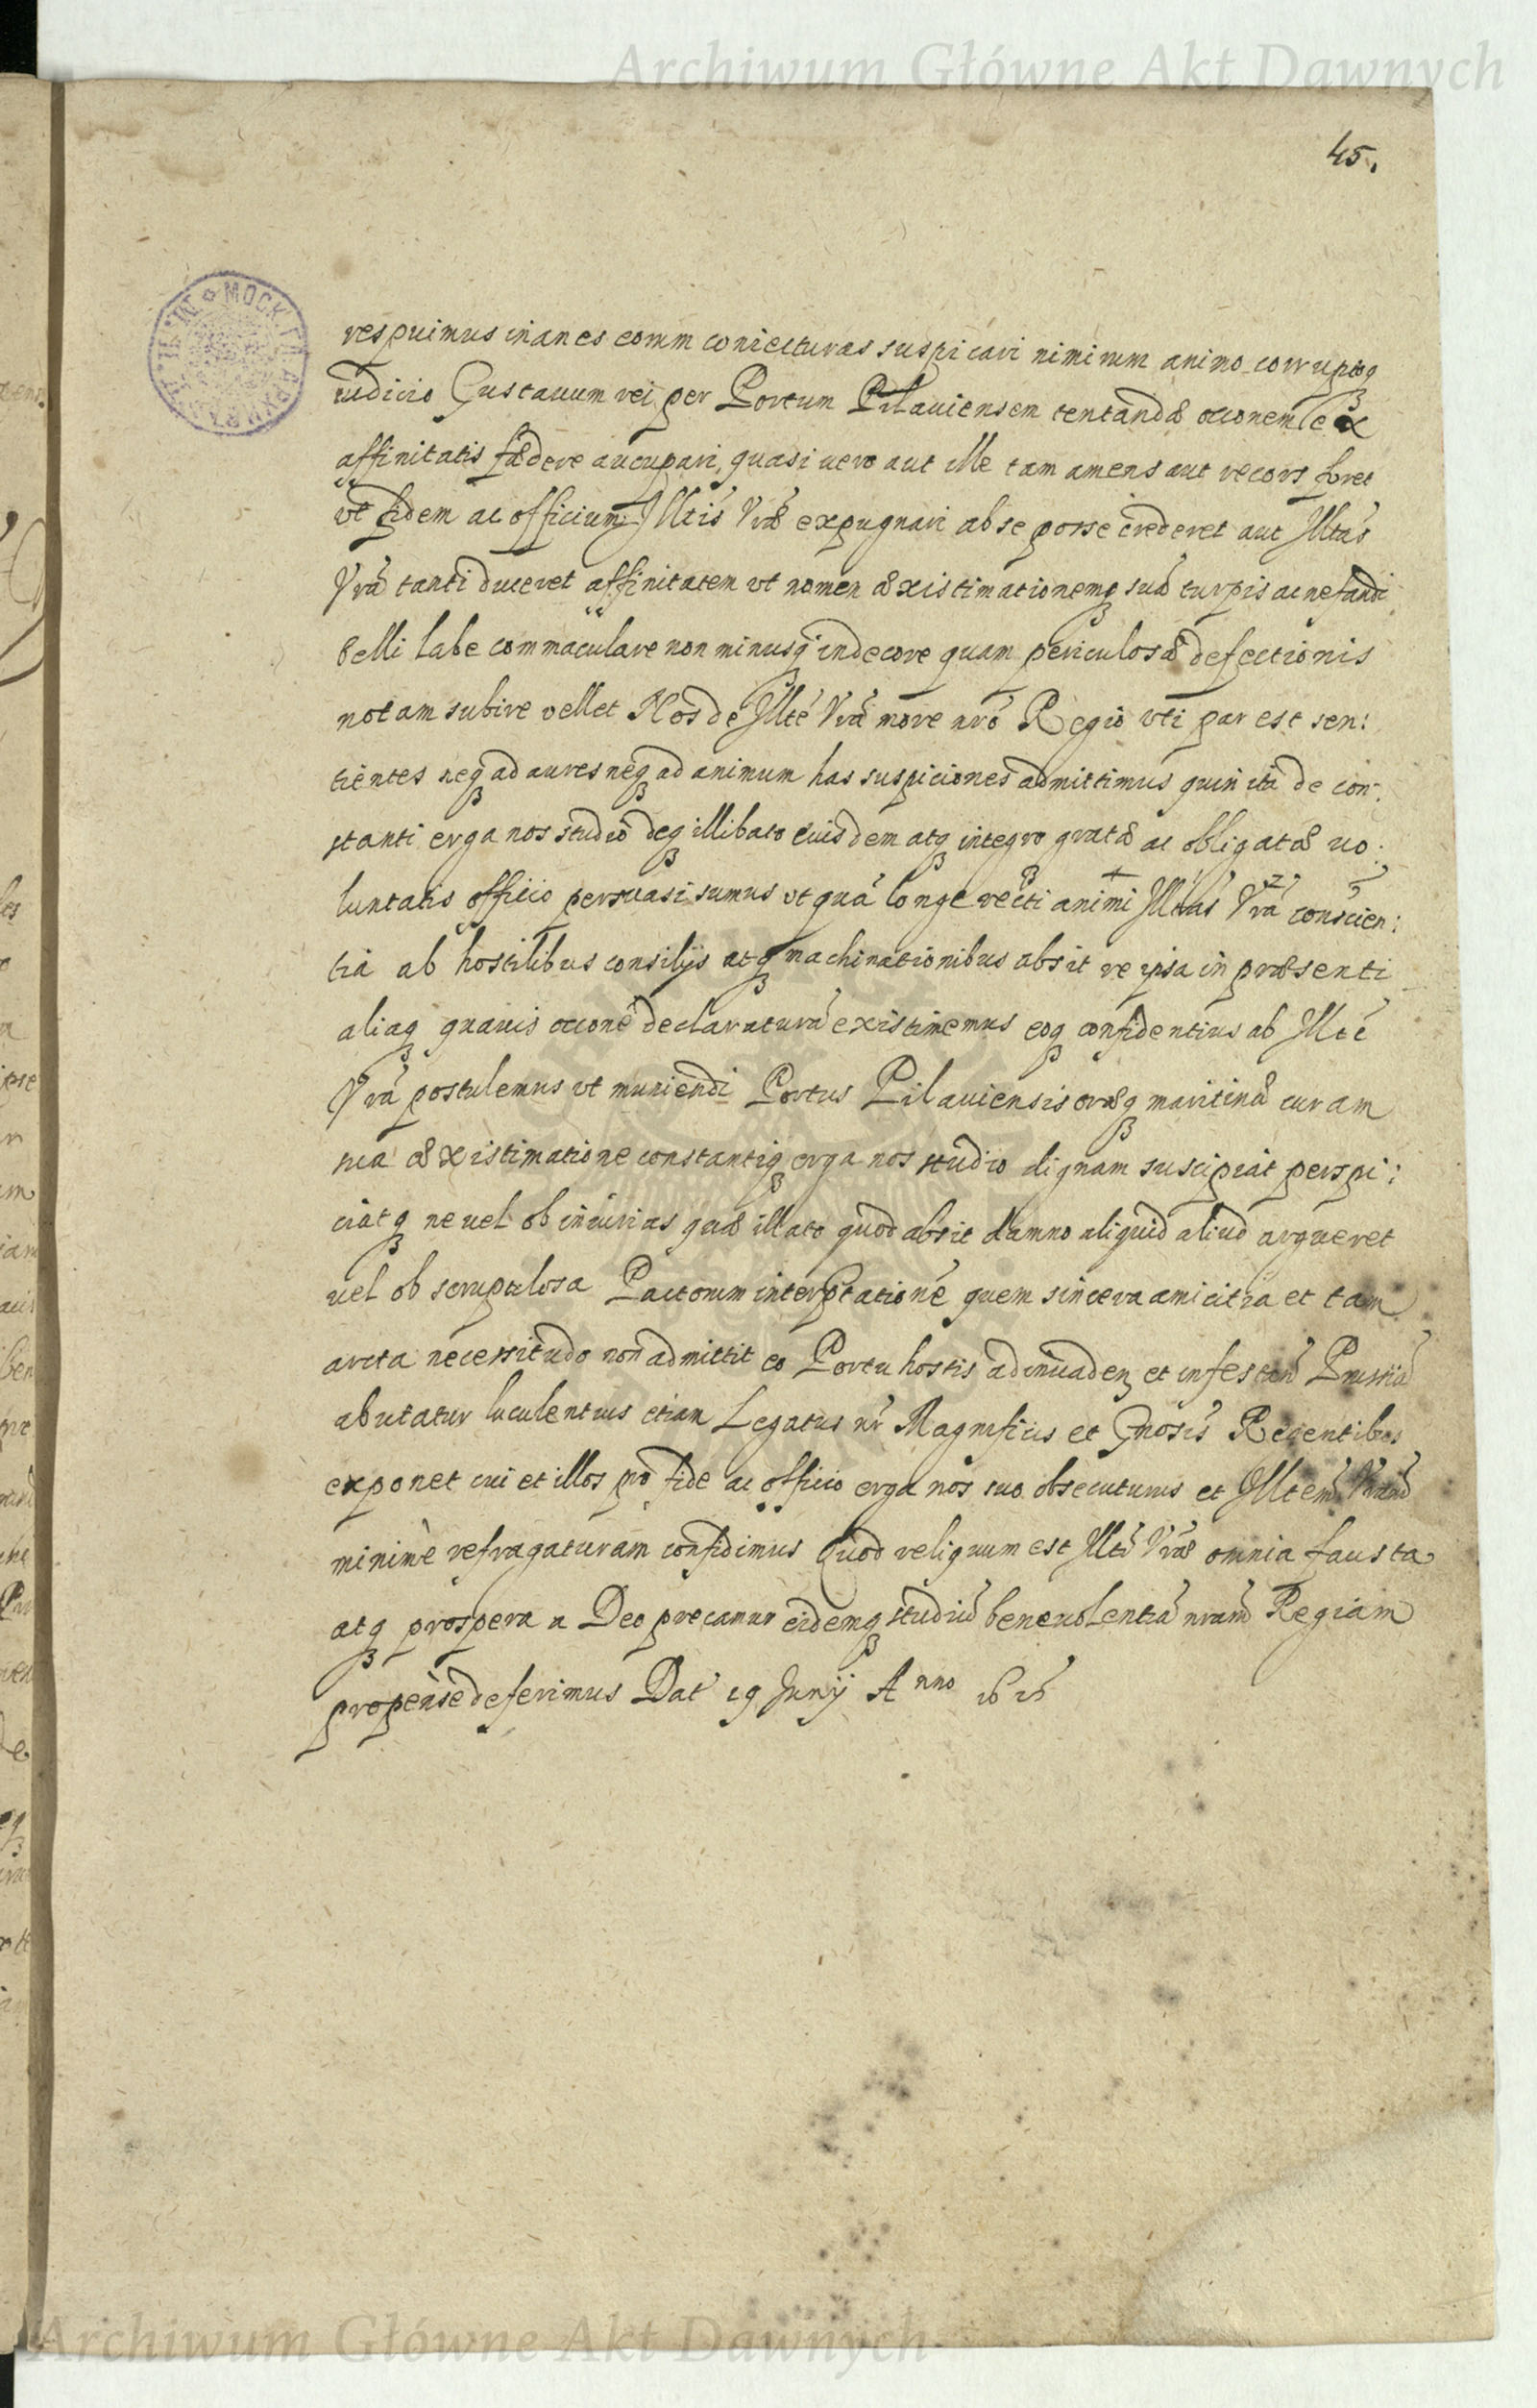 Archiwum Główne Akt Dawnych
45.
respuimus inanes eorum coniecturas suspicari nimirum animo corruptoq3
iudicio Gustauum rei per Portum Pilauiensem tentandæ occonem ex
affinitatis fædere aucupari, quasi uero aut ille tam amens aut vecors foret
vt fidem ac officium Illtis Vræ expugnari ab se posse crederet aut Illtas
Vra tanti duceret affinitatem vt nomen æxistimationemq3 sua turpis ac nefandi
belli labe commaculare non minusq3 indecore quam periculosæ defectionis
notam subire vellet Nos de Illte Vra more nro Regio vti par est sen:
tientes neq3 ad aures neq3 ad animum has suspiciones admittimus quin ita de con:
stanti erga nos studio deq3 illibato eiusdem atq3 integro gratæ ac obligatæ uo:
luntatis officio persuasi sumus vt qua longe recti animi Illtas Vra conscien:
tia ab hostilibus consilijs atq3 machinationibus absit re ipsa in præsenti
aliaq3 quauis occone declaratura existimemus eoq3 confidentius ab Illte
Vra postulemus vt muniendi Portus Pilauiensis oræq3 maritimæ curam
sua æxistimatione constantiq3 erga nos studio dignam suscipiat perspi:
ciatq3 ne uel ob iniurias quæ illato quod absit damno aliquid aliud argueret
uel ob scrupulosa Pactorum interptatione quem sincera amicitia et tam
arcta necessitudo non admittit eo Portu hostis ad inuaden et infestan Prussia
abutatur luculentius etiam Legatus nr Magnificis et Gnosis Regentibus
exponet cui et illos pro fide ac officio erga nos suo obsecuturos et Illtem Vram
minimè refragaturam confidimus Quod reliquum est Illti Vræ omnia fausta
atq3 prospera a Deo precamur eidemq3 studiu beneuolentia nram Regiam
propense deferimus Dat 19 Junij Anno
Archiwum Główne Akt Dawnych